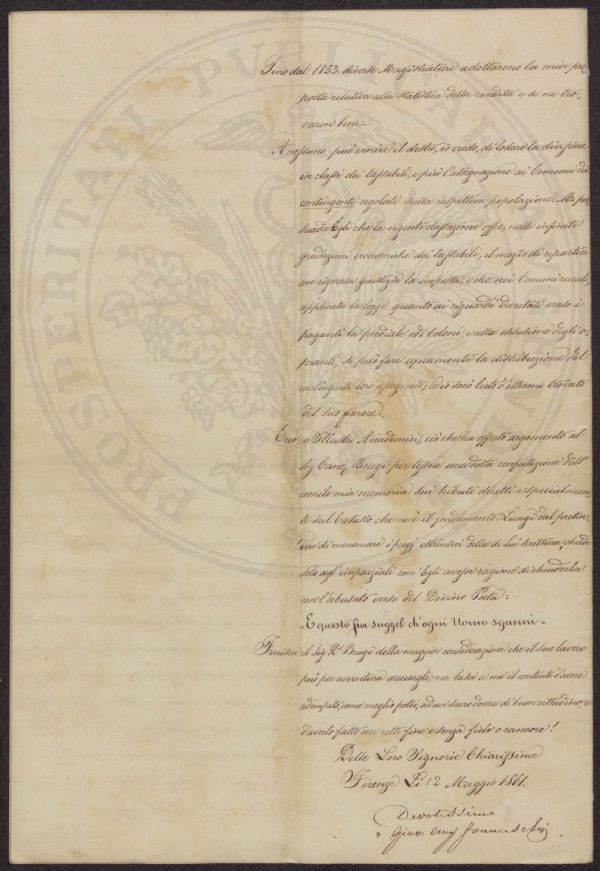 Fino dal 1853. diverse Magistrature adottarono la mia pro-
posta relativa alla statistica della rendita e se ne tro-
varon bene.
A nessuno può venire il destro, io credo, di lodare la divisione
in classi dei tassabili, e più l'assegnazione ai Comuni dei
contingenti regolati sulla respettiva popolazione. Mi per-
suada Egli che la vigente classazione offre, nelle infinite
gradazioni economiche dei tassabili, il mezzo di repartire
con rigorosa giustizia la imposta, e che nei Comuni rurali,
applicata la legge quanto ai riguardi decretati verso i
paganti la prediale ed i Coloni, e alla esclusione degli o-
pranti, si può fare equamente la distribuzione del
contingente loro assegnato; ed io sarò lieto d'essermi trovato
del suo parere.
Ecco, o Illustri Accademici, ciò che ha offerto argomento al
Sig. Canc. Bengi per tessere una dotta confutazione dell'
umile mia memoria dei tributi diretti e specialmen-
te sul Catasto che ne è il fondamento. Lungi dal preten-
dere di menomare i pregj estrinseci della di Lui scrittura, chiedo
solo agl'imparziali com'Egli avesse ragione di chiuderla
con l'abusato verso del Divino Poeta:
E questo fia suggel ch'ogni Uomo sganni.
Fruisca il Sig. Bengi della maggior considerazione che il suo lavoro
può per avventura arrecargli; ma lasci a me il contento d'avere
adempito, come meglio potei, ad un sacro dovere di buon cittadino, e
d'averlo fatto con retto fine e senza fiele o rancore!
Delle Loro Signorie Chiarissime
Firenze Li 12 Maggio 1861.
Devotissimo
Giov. Ang. Franceschi
PROSPERITATI PUBLICAE